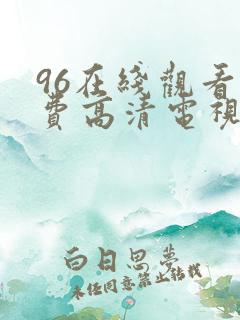 96在綫觀看
費高清電視
白日思夢
未经同意禁止转载